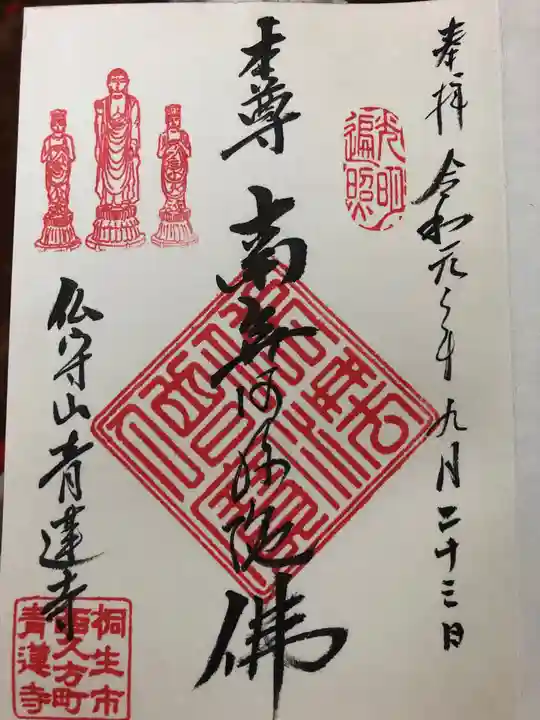 奉拝 令和元年九月二十三日
光明
遍照
本尊 南無阿弥陀佛
仏守山青蓮寺
桐生市
西久方町
青蓮寺